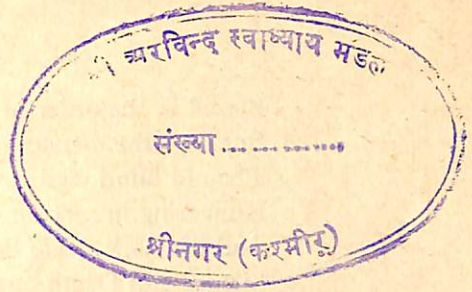 श्री अरविन्द स्वाध्याय मंडल
संख्या ..............
श्रीनगर (कश्मीर)